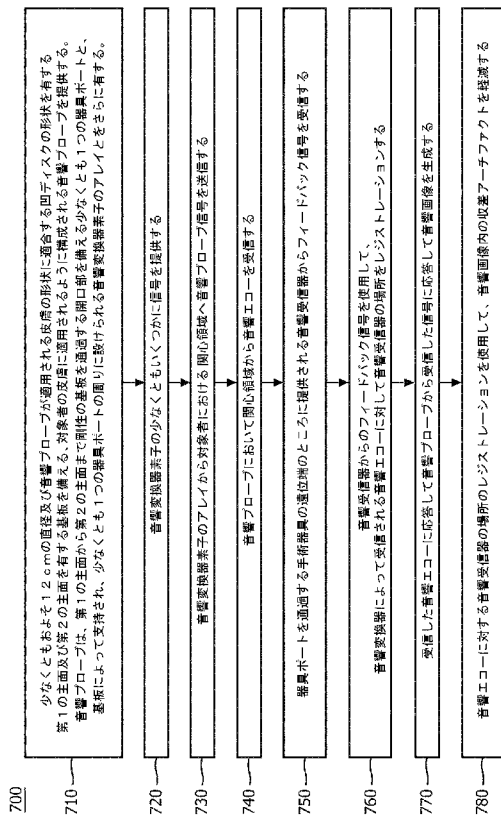 700
710
少なくともおよそ12cmの直径及び音響プローブが適用される皮膚の形状に適合する凹ディスクの形状を有する
第1の主面及び第2の主面を有する基板を備える、対象者の皮膚に適用されるように構成される音響プローブを提供する。
音響プローブは、第1の主面から第2の主面まで剛性の基板を通過する開口部を備える少なくとも1つの器具ポートと、
基板によって支持され、少なくとも1つの器具ポートの周りに設けられる音響変換器素子のアレイとをさらに有する。
720
音響変換器素子の少なくともいくつかに信号を提供する
730
音響変換器素子のアレイから対象者における関心領域へ音響プローブ信号を送信する
740
音響プローブにおいて関心領域から音響エコーを受信する
750
器具ポートを通過する手術器具の遠位端のところに提供される音響受信器からフィードバック信号を受信する
760
音響受信器からのフィードバック信号を使用して、
音響変換器によって受信される音響エコーに対して音響受信器の場所をレジストレーションする
770
受信した音響エコーに応答して音響プローブから受信した信号に応答して音響画像を生成する
780
音響エコーに対する音響受信器の場所のレジストレーションを使用して、音響画像内の収差アーチファクトを軽減する